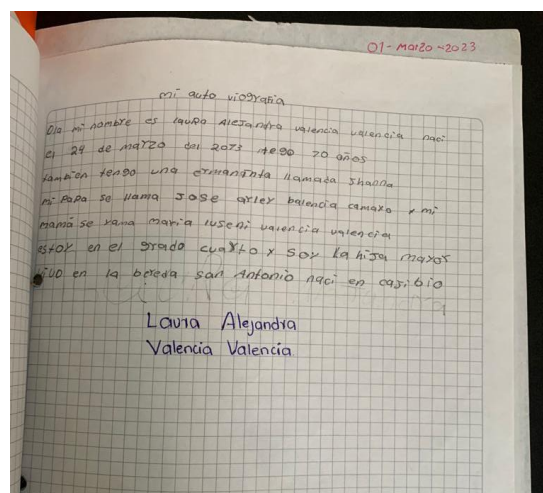 01-Marzo-2023
mi auto viografia
Ola mi nombre es lauRa Alejandra valencia valencia naci
el 24 de marzo del 2013 tego 10 años
tambien tengo una ermaninta llamada Shanna
mi PaPa se llama JOSE arley balencia camaxo y mi
mamá se yama maria luseni valencia valencia
estoy en el grado cuarto y soy la hija mayor
viVO en la bereda san Antonio naci en cajibio
Laura Alejandra
Valencia Valencia